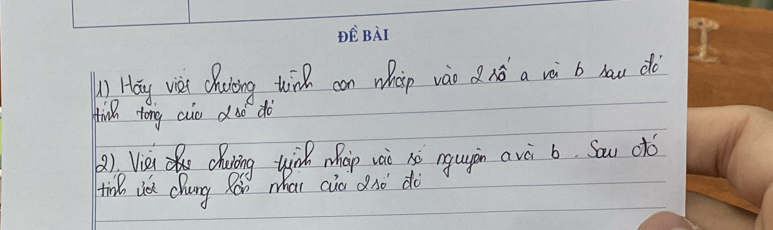 ĐỀ BÀI
1) Hãy viết chương trình con nhập vào 2 số a và b sau đó
tính tổng của 2 số đó
2). Viết chương trình nhập vào số nguyên a và b. Sau đó
tính ước chung lớn nhất của 2 số đó